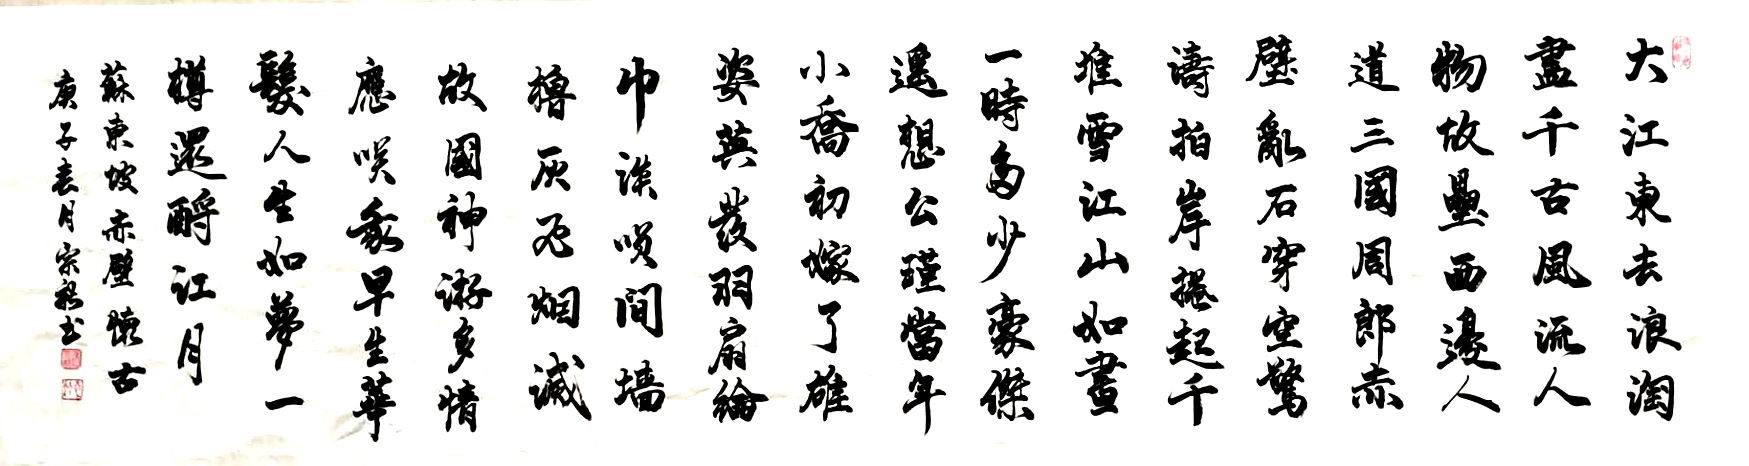 大江東去浪淘
盡千古風流人
物故壘西邊人
道三國周郎赤
壁亂石穿空驚
濤拍岸捲起千
堆雪江山如畫
一時多少豪傑
遥想公瑾當年
小喬初嫁了雄
姿英發羽扇綸
巾談笑間墻
櫓灰飛烟滅
故國神游多情
應笑我早生華
髮人生如夢一
樽還酹江月
蘇東坡赤壁懷古
庚子春月宗書